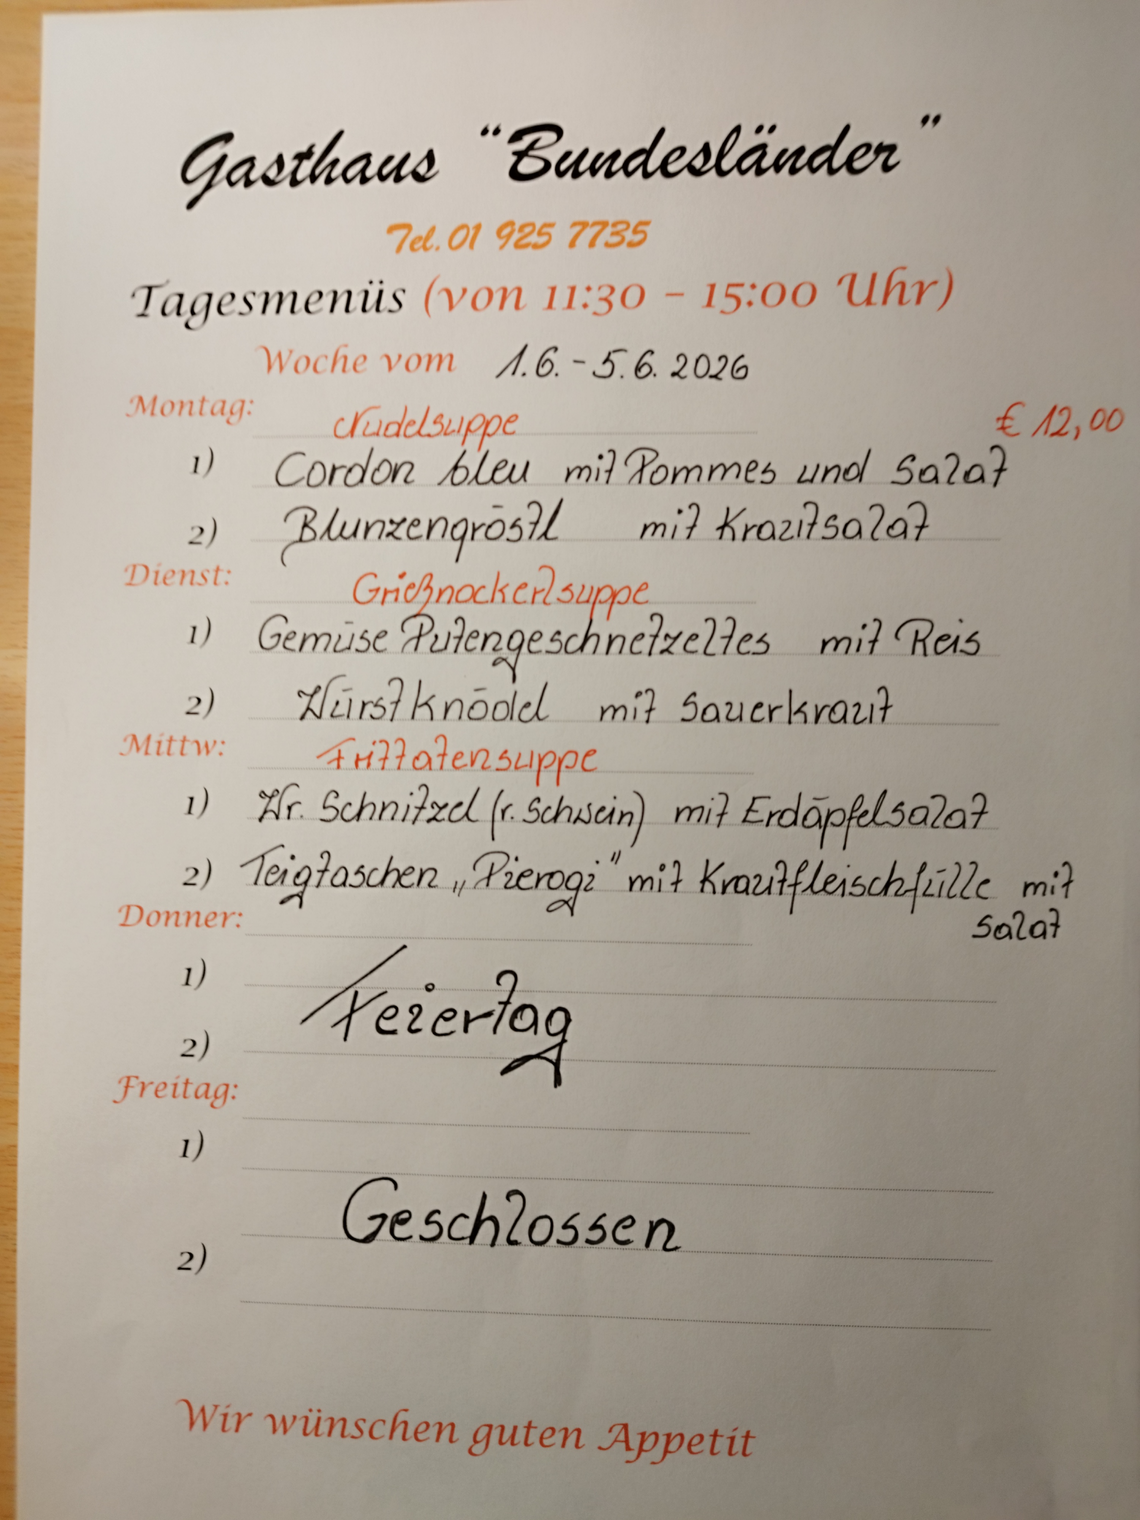 Gasthaus "Bundesländer"
Tel. 01 925 7735
Tagesmenüs (von 11:30 - 15:00 Uhr)
Woche vom 1.6. - 5.6. 2026
Montag: Nudelsuppe € 12,00
1) Cordon bleu mit Pommes und Salat
2) Blunzengröstl mit Krautsalat
Dienst: Grießnockerlsuppe
1) Gemüse Putengeschnetzeltes mit Reis
2) Wurstknödel mit Sauerkraut
Mittw: Frittatensuppe
1) Wr. Schnitzel (v. Schwein) mit Erdäpfelsalat
2) Teigtaschen „Pierogi" mit Krautfleischfülle mit
Salat
Donner:
1)
Feiertag
2)
Freitag:
1)
Geschlossen
2)
Wir wünschen guten Appetit